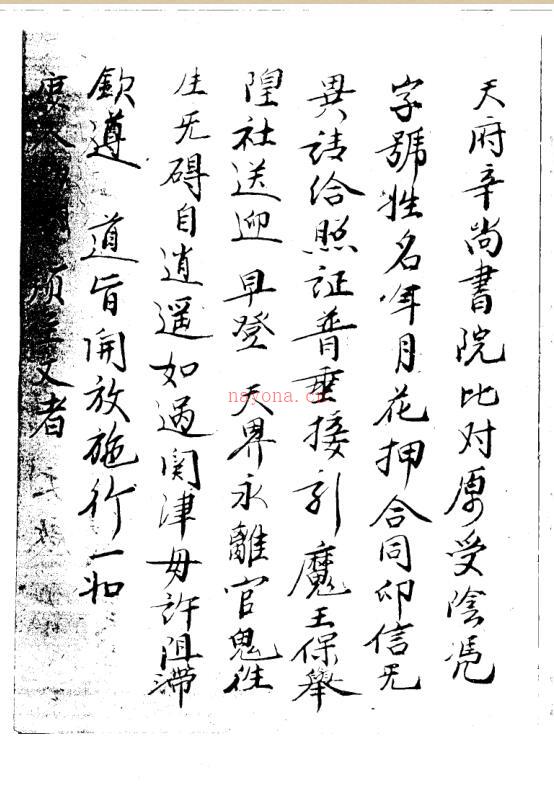 天府辛尚書院比对原受陰凴
字號姓名年月花押合同印信无
異請给照証普垂接引魔王保舉
隍社送迎早登天界永離官鬼往
生无碍自逍遥如過関津毋許阻滯
欽遵道旨開放施行一如
須至文者
nayona.cn